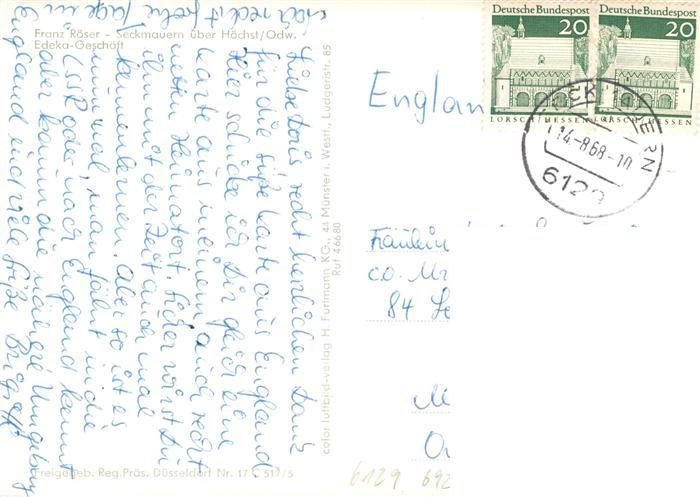 Franz Röser - Seckmauern über Höchst/Odw.
Edeka-Geschäft
Deutsche Bundespost
20
LORSCH/HESSEN
Deutsche Bundespost
20
LORSCH/HESSEN
14-8 68-10
6129
England
Fräulein
co. Mr
84
color luftbild-verlag H. Furtmann KG., 44 Münster i. Westf., Ludgeristr. 85
Ruf 46680
recht herzlichen Dank
für die süße Karte aus England
Hier schicke ich Dir gleich eine
Karte aus meinem auch recht
netten Heimatort. Sicher wirst Du
ihn mit der Zeit auch mal
kennenlernen. Aber so ist es
nun mal, man fährt in die
CSSR oder nach England kennt
aber kaum die nähere Umgebung
England und viele Grüße
noch recht frohe Tage in
Freigegeb. Reg.Präs. Düsseldorf Nr. 17 C 517/5
6129 692